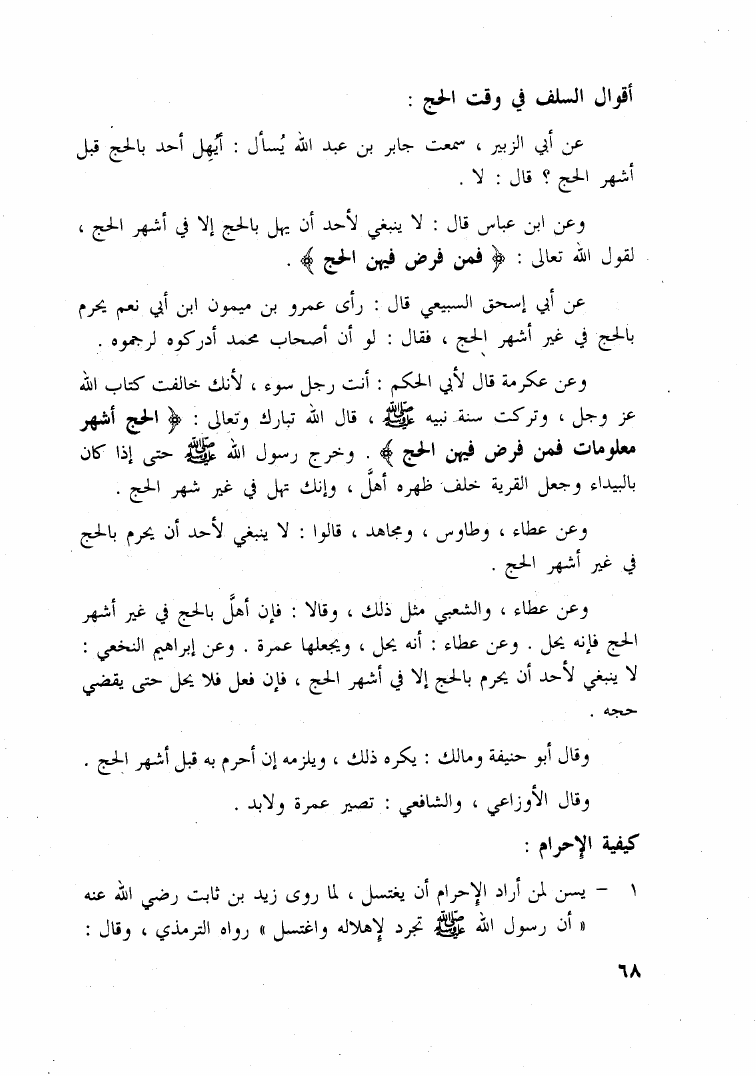 أقوال السلف في وقت الحج :
عن أبي الزبير ، سمعت جابر بن عبد الله يُسأل : أيُهِل أحد بالحج قبل
أشهر الحج ؟ قال : لا .
وعن ابن عباس قال : لا ينبغي لأحد أن يهل بالحج إلا في أشهر الحج ،
لقول الله تعالى : ﴿ فمن فرض فيهن الحج ﴾ .
عن أبي إسحق السبيعي قال : رأى عمرو بن ميمون ابن أبي نعم يحرم
بالحج في غير أشهر الحج ، فقال : لو أن أصحاب محمد أدركوه لرجموه .
وعن عكرمة قال لأبي الحكم : أنت رجل سوء ، لأنك خالفت كتاب الله
عز وجل ، وتركت سنة نبيه ﷺ ، قال الله تبارك وتعالى : ﴿ الحج أشهر
معلومات فمن فرض فيهن الحج ﴾ . وخرج رسول الله ﷺ حتى إذا كان
بالبيداء وجعل القرية خلف ظهره أهلَّ ، وإنك تهل في غير شهر الحج .
وعن عطاء ، وطاوس ، ومجاهد ، قالوا : لا ينبغي لأحد أن يحرم بالحج
في غير أشهر الحج .
وعن عطاء ، والشعبي مثل ذلك ، وقالا : فإن أهلَّ بالحج في غير أشهر
الحج فإنه يحل . وعن عطاء : أنه يحل ، ويجعلها عمرة . وعن إبراهيم النخعي :
لا ينبغي لأحد أن يحرم بالحج إلا في أشهر الحج ، فإن فعل فلا يحل حتى يقضي
حجه .
وقال أبو حنيفة ومالك : يكره ذلك ، ويلزمه إن أحرم به قبل أشهر الحج .
وقال الأوزاعي ، والشافعي : تصير عمرة ولابد .
كيفية الإحرام :
١ – يسن لمن أراد الإحرام أن يغتسل ، لما روى زيد بن ثابت رضي الله عنه
« أن رسول الله ﷺ تجرد لإهلاله واغتسل » رواه الترمذي ، وقال :
٦٨